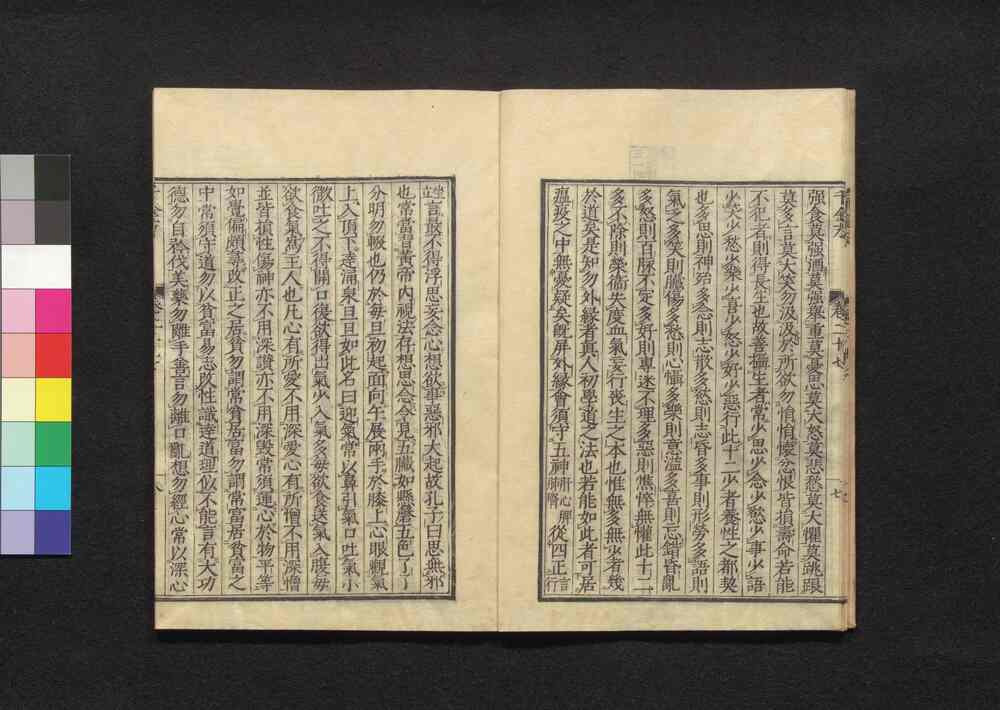 强食莫强酒莫强舉重莫憂思莫大怒莫悲愁莫大懼莫跳踉
莫多言莫大笑勿汲汲於所欲勿悁悁懷忿恨皆損壽命若能
不犯者則得長生也故善攝生者常少思少念少慾少事少語
少笑少愁少樂少喜少怒少好少惡行此十二少者養性之都契
也多思則神殆多念則志散多慾則志昏多事則形勞多語則
氣乏多笑則臓傷多愁則心懾多樂則意溢多喜則忘錯昏亂
多怒則百脉不定多好則專迷不理多惡則憔悴無懽此十二
多不除則榮衛失度血氣妄行喪生之本也惟無多無少者幾
於道矣是知勿外緣者真人初學道之法也若能如此者可居
瘟疫之中無憂疑矣旣屏外緣會須守五神肝心脾肺腎從四正言行
坐立言最不得浮思妄念心想欲事惡邪大起故孔子曰思無邪
也常當習黃帝內視法存想思念令見五臟如懸磬五色了了
分明勿輟也仍於每旦初起面向午展兩手於膝上心眼觀氣
上入頂下達涌泉旦旦如此名曰迎氣常以鼻引氣口吐氣小
微吐之不得開口復欲得出氣少入氣多每欲食送氣入腹每
欲食氣爲主人也凡心有所愛不用深愛心有所憎不用深憎
並皆損性傷神亦不用深讚亦不用深毀常須運心於物平等
如覺偏頗尋改正之居貧勿謂常貧居富勿謂常富居貧富之
中常須守道勿以貧富易志改性識達道理似不能言有大功
德勿自矜伐美藥勿離手善言勿離口亂想勿經心常以深心